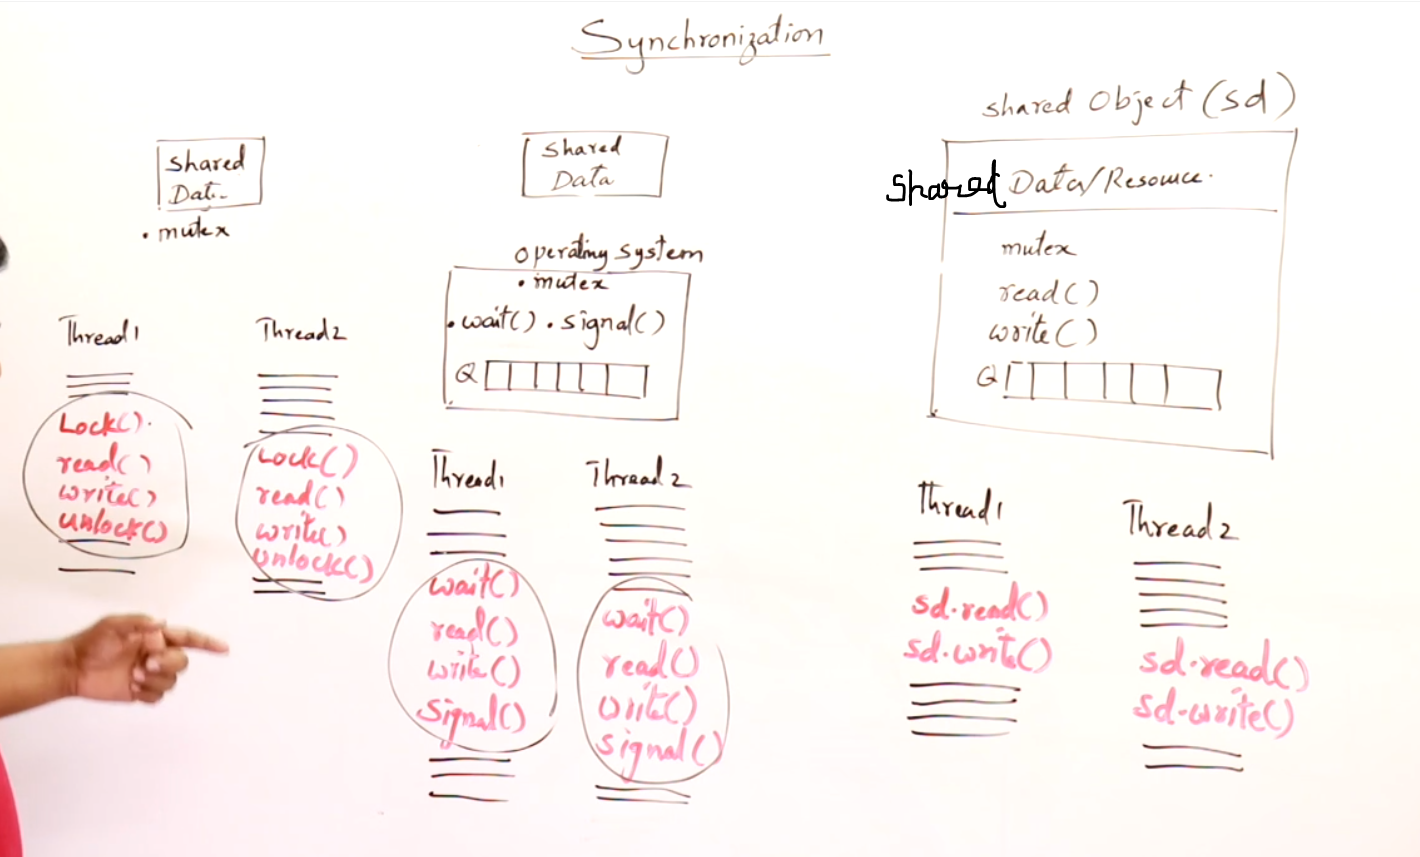 Synchronization
shared
Dat-
• mutex
Thread1
Lock().
read()
write()
unlock()
Thread2
Lock()
read()
write()
unlock()
shared
Data
operating system
• mutex
• wait() • signal()
Q
Thread1
wait()
read()
write()
signal()
Thread2
wait()
read()
write()
signal()
shared Object (sd)
shared Data/Resource.
mutex
read()
write()
Q
Thread1
sd.read()
sd.write()
Thread2
sd.read()
sd.write()